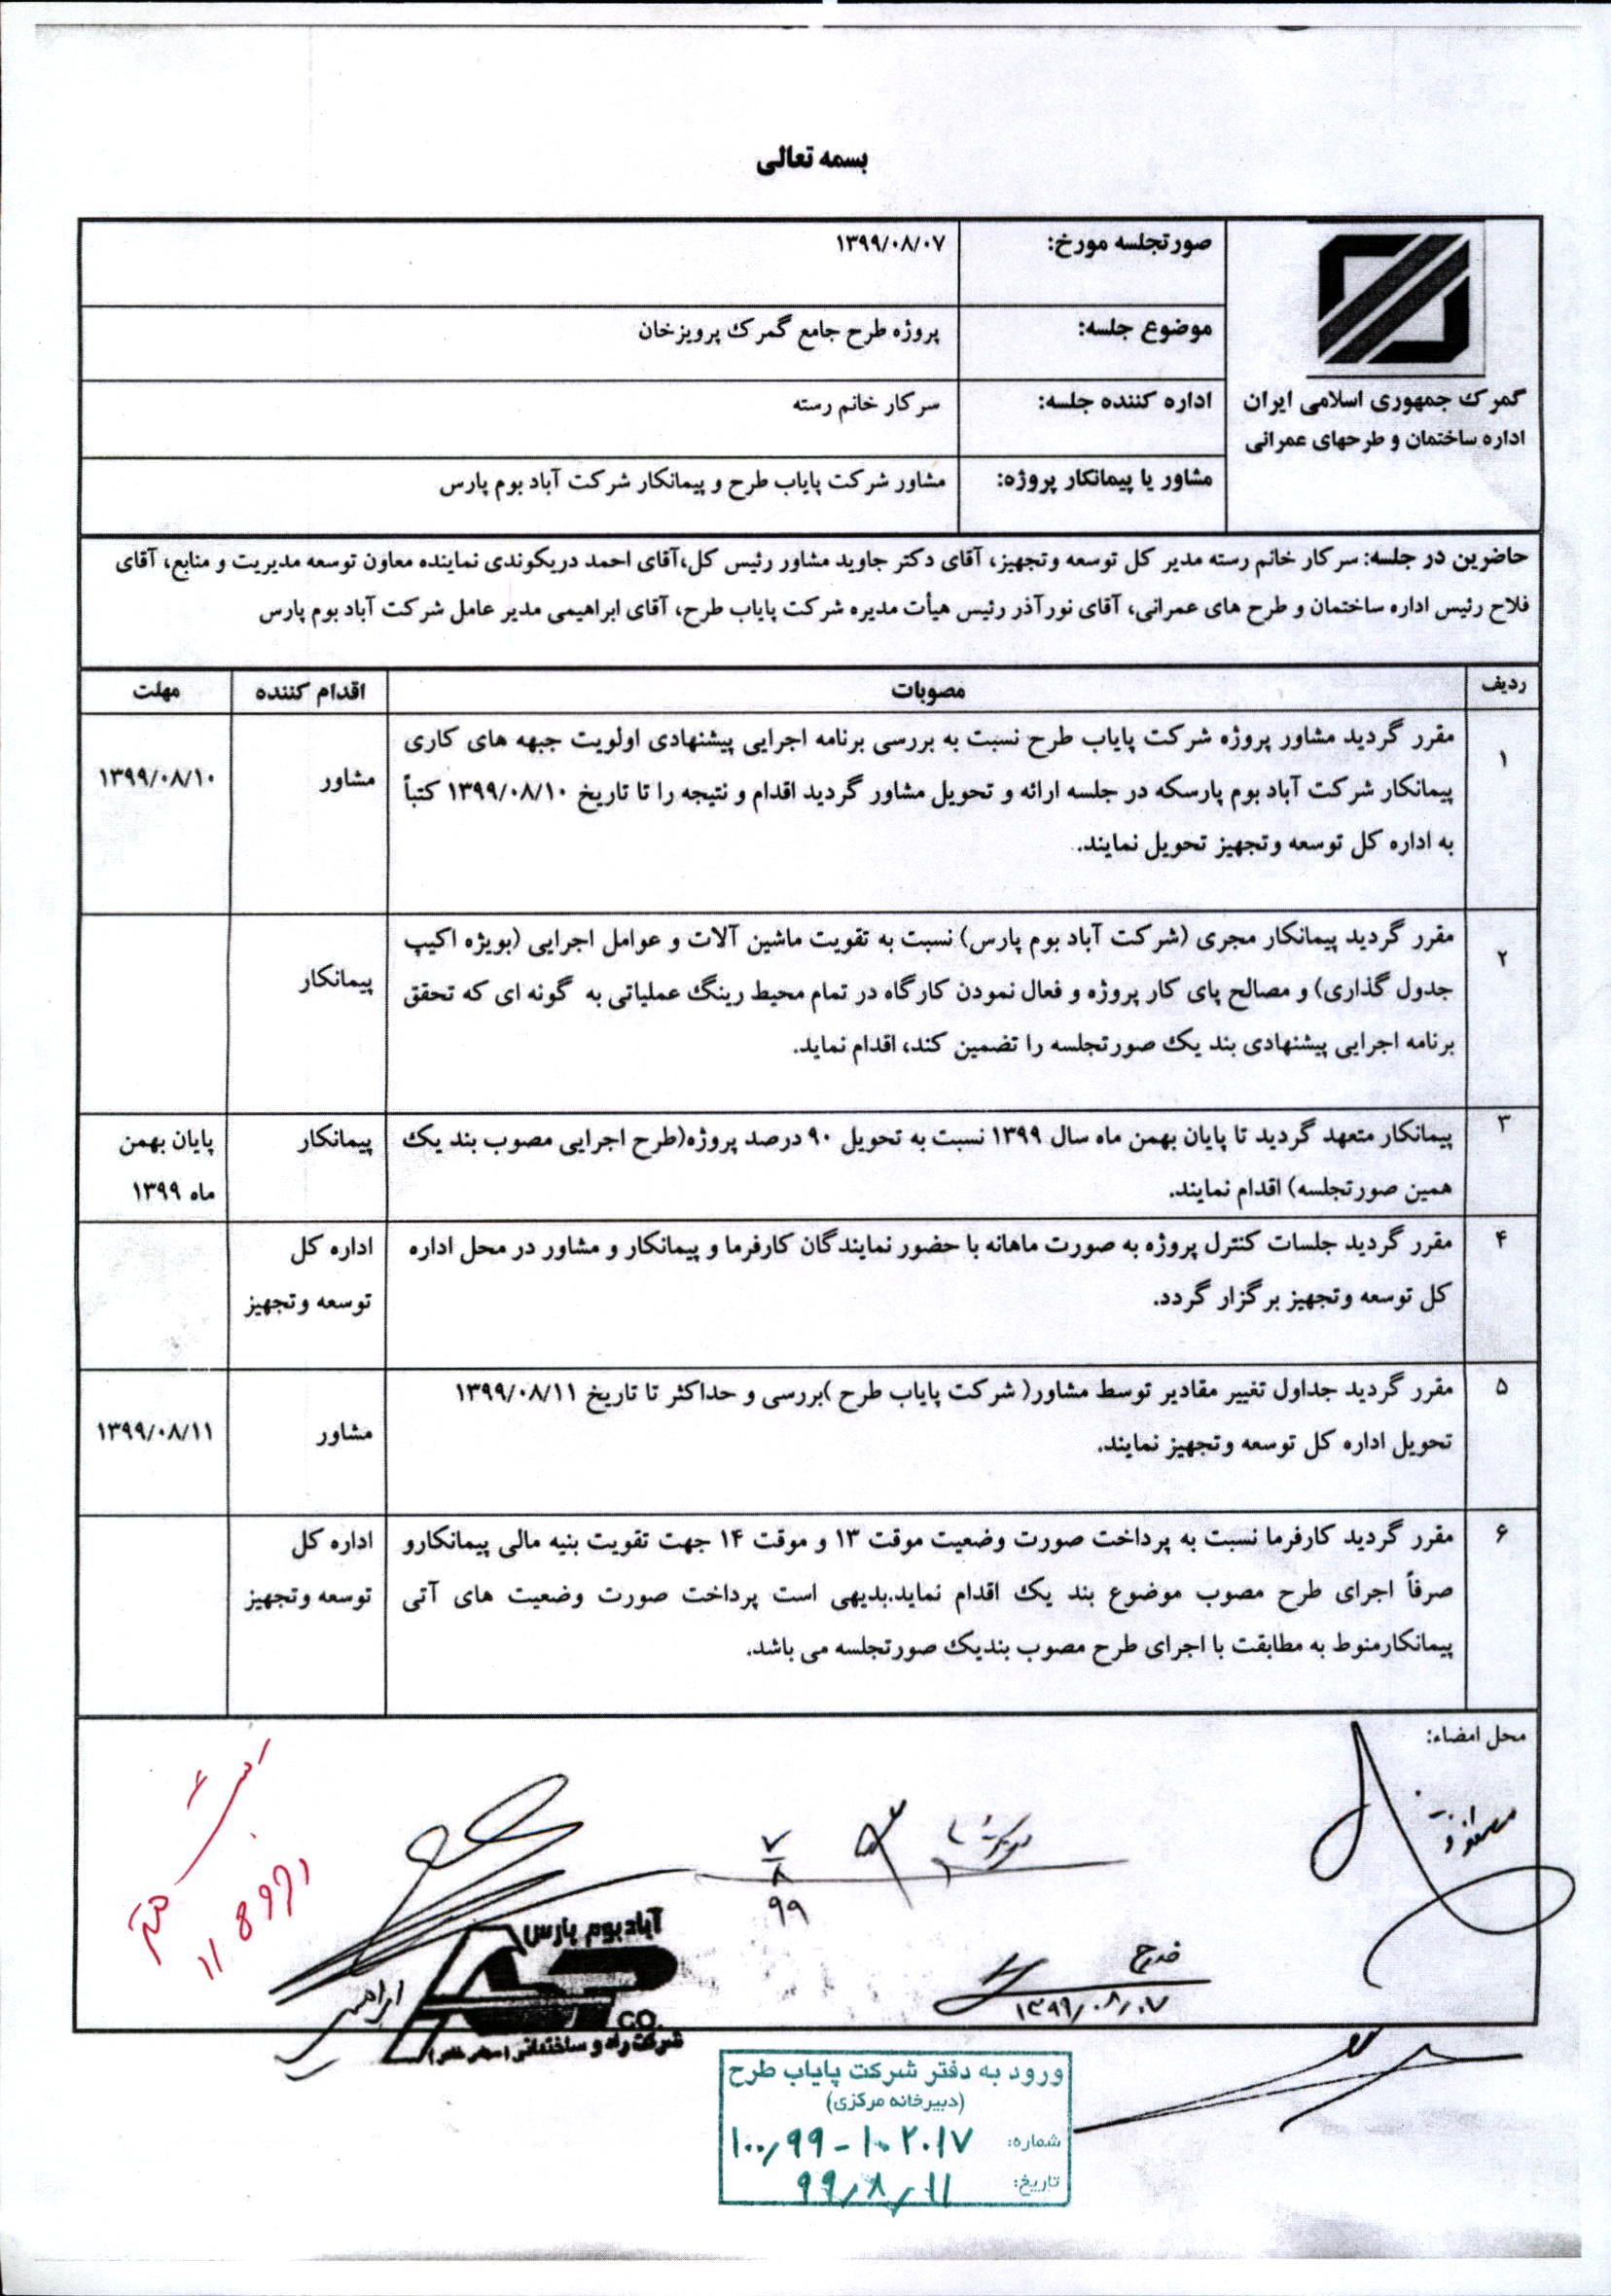 بسمه تعالی
گمرک جمهوری اسلامی ایران
اداره ساختمان و طرحهای عمرانی
صورتجلسه مورخ: ۱۳۹۹/۰۸/۰۷
موضوع جلسه: پروژه طرح جامع گمرک پرویزخان
اداره کننده جلسه: سرکار خانم رسته
مشاور یا پیمانکار پروژه: مشاور شرکت پایاب طرح و پیمانکار شرکت آباد بوم پارس
حاضرین در جلسه: سرکار خانم رسته مدیر کل توسعه وتجهیز، آقای دکتر جاوید مشاور رئیس کل،آقای احمد دریکوندی نماینده معاون توسعه مدیریت و منابع، آقای
فلاح رئیس اداره ساختمان و طرح های عمرانی، آقای نورآذر رئیس هیأت مدیره شرکت پایاب طرح، آقای ابراهیمی مدیر عامل شرکت آباد بوم پارس
ردیف مصوبات اقدام کننده مهلت
۱
مقرر گردید مشاور پروژه شرکت پایاب طرح نسبت به بررسی برنامه اجرایی پیشنهادی اولویت جبهه های کاری
پیمانکار شرکت آباد بوم پارسکه در جلسه ارائه و تحویل مشاور گردید اقدام و نتیجه را تا تاریخ ۱۳۹۹/۰۸/۱۰ کتباً
به اداره کل توسعه وتجهیز تحویل نمایند.
مشاور
۱۳۹۹/۰۸/۱۰
۲
مقرر گردید پیمانکار مجری (شرکت آباد بوم پارس) نسبت به تقویت ماشین آلات و عوامل اجرایی (بویژه اکیپ
جدول گذاری) و مصالح پای کار پروژه و فعال نمودن کارگاه در تمام محیط رینگ عملیاتی به گونه ای که تحقق
برنامه اجرایی پیشنهادی بند یک صورتجلسه را تضمین کند، اقدام نماید.
پیمانکار
۳
پیمانکار متعهد گردید تا پایان بهمن ماه سال ۱۳۹۹ نسبت به تحویل ۹۰ درصد پروژه(طرح اجرایی مصوب بند یک
همین صورتجلسه) اقدام نمایند.
پیمانکار
پایان بهمن
ماه ۱۳۹۹
۴
مقرر گردید جلسات کنترل پروژه به صورت ماهانه با حضور نمایندگان کارفرما و پیمانکار و مشاور در محل اداره
کل توسعه وتجهیز برگزار گردد.
اداره کل
توسعه وتجهیز
۵
مقرر گردید جداول تغییر مقادیر توسط مشاور( شرکت پایاب طرح )بررسی و حداکثر تا تاریخ ۱۳۹۹/۰۸/۱۱
تحویل اداره کل توسعه وتجهیز نمایند.
مشاور
۱۳۹۹/۰۸/۱۱
۶
مقرر گردید کارفرما نسبت به پرداخت صورت وضعیت موقت ۱۳ و موقت ۱۴ جهت تقویت بنیه مالی پیمانکارو
صرفاً اجرای طرح مصوب موضوع بند یک اقدام نماید.بدیهی است پرداخت صورت وضعیت های آتی
پیمانکارمنوط به مطابقت با اجرای طرح مصوب بندیک صورتجلسه می باشد.
اداره کل
توسعه وتجهیز
محل امضاء:
۷
۸
۹۹
۱۳۹۹/۰۸/۰۷
ابراهیمی
آباد بوم پارس
CO.
شرکت راه و ساختمانی
ورود به دفتر شرکت پایاب طرح
(دبیرخانه مرکزی)
شماره: ۱۰۰/۹۹-۱۰۲۰۱۷
تاریخ: ۹۹/۸/۱۱